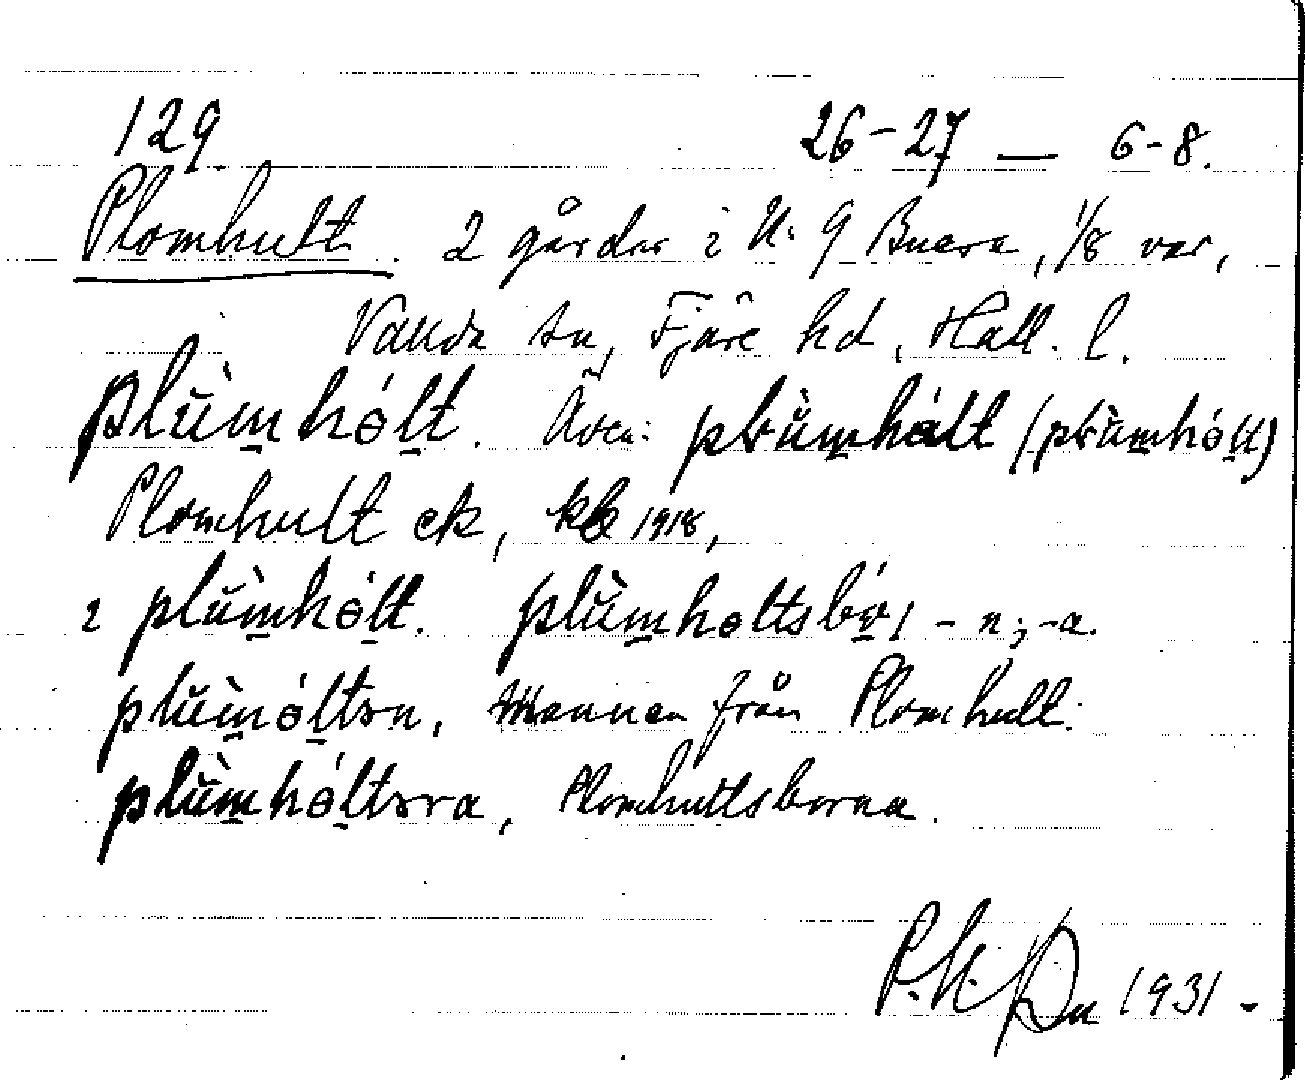 129 26-27 — 6-8.
Plomhult. 2 gårdar i N: 9 Buera, 1/8 var,
Vallda sn, Fjäre hd, Hall. l.
plùmhólt. Även: plùmhàlt (plùmhólt)
Plomhult ek, kb 1918,
i plùmhólt. plùmhəltsbo, -n; -a.
plùmóltsn, Mannen från Plomhult.
plùmhóltsra, Plomhultsborna.
1931-